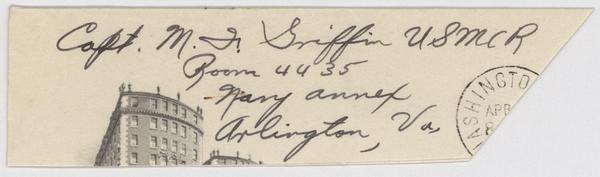 Capt. M. J. Griffin USMCR
Room 4435
Navy Annex
Arlington, Va,
WASHINGTO
APR
8